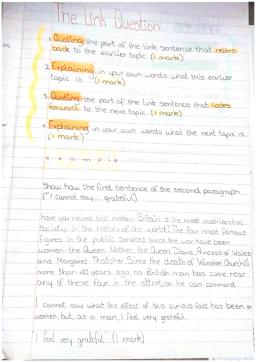 The Link Question
1. Quoting the part of the link sentence that refers
back to the earlier topic (1 mark)
2. Explaining in your own words what this earlier
topic is (1 mark)
3. Quoting the part of the link sentence that looks
forward to the next topic (1 mark)
4. Explaining in your own words what the next topic is.
(1 mark)
e x a m p l e
Show how the first sentence of the second paragraph
("I cannot say... grateful")
have you noticed that modern Britain is the most matriarchal
Society in the history of the world? The four most famous
figures in the public services since the war have been
women: the Queen Mother, the Queen, Diana, Princess of Wales
and Margaret Thatcher. Since the death of Winston Churchill
more than 40 years ago, no British man has come near
any of these four in the attention he can command.
I cannot say what the effect of this curious fact has been on
women, but, as a man, I feel very grateful.
"I feel very grateful" (1 mark)